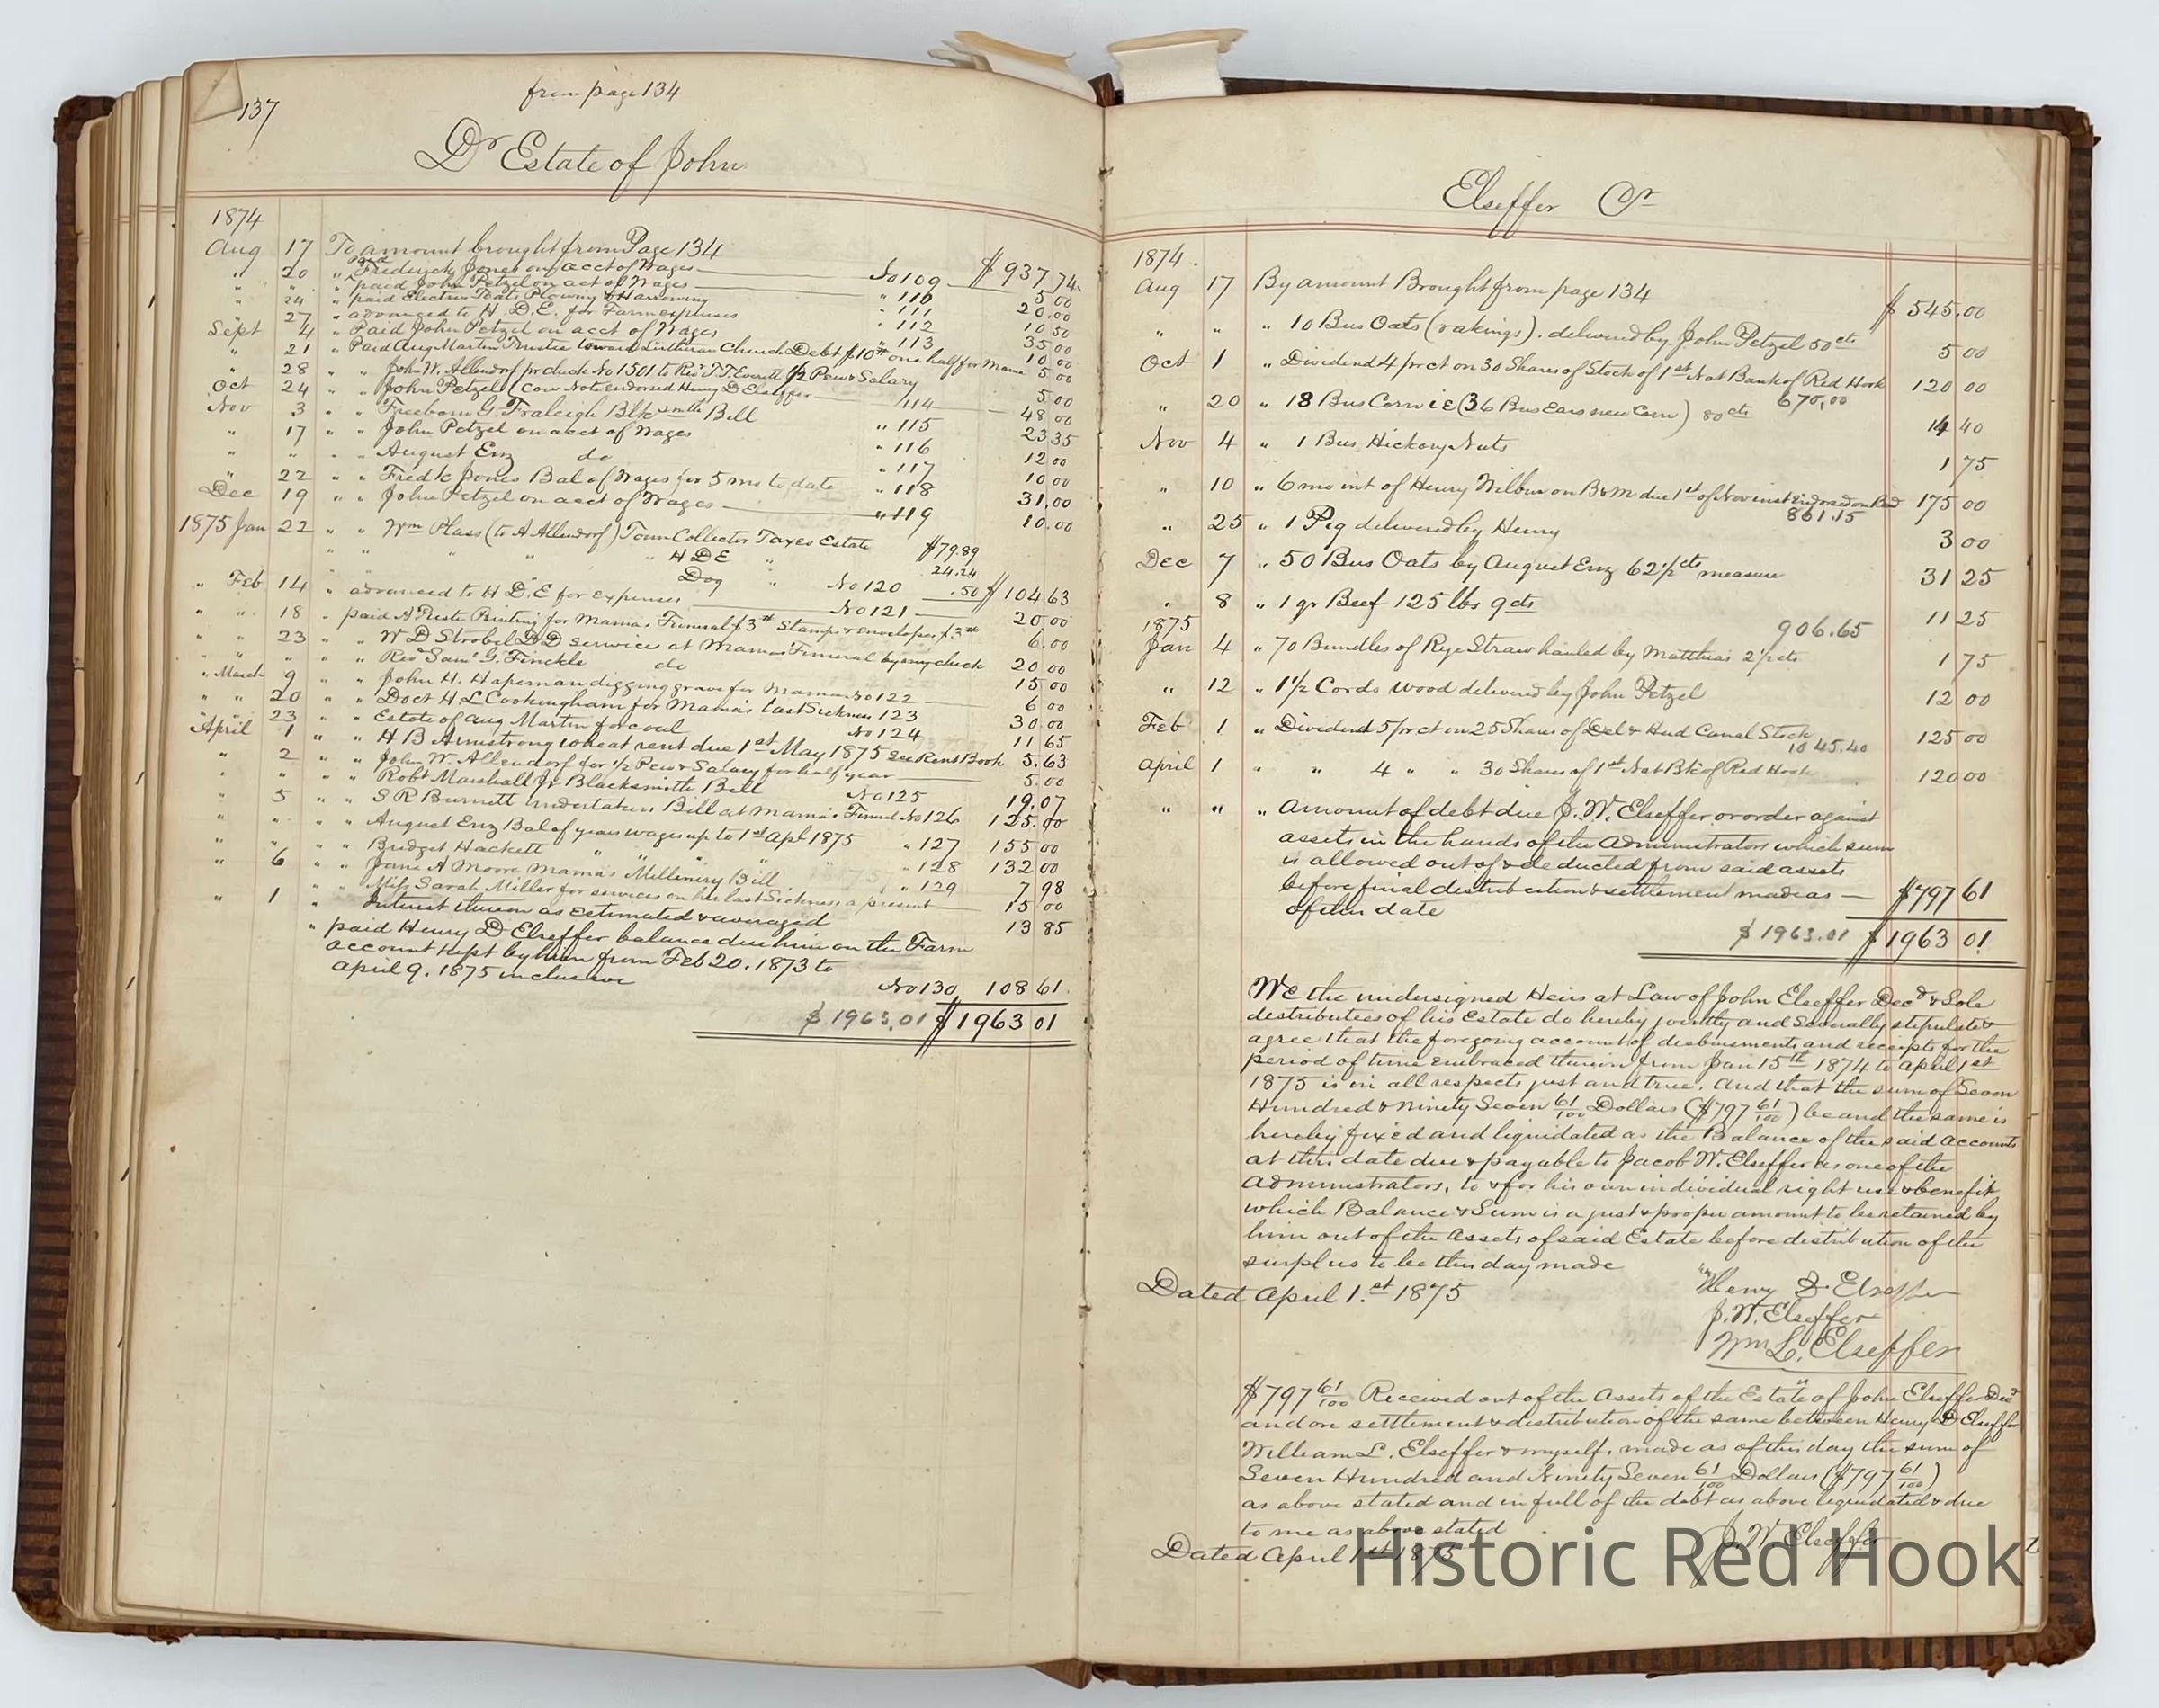 137
from page 134
Dr Estate of John
1874
Aug 17 To amount brought from Page 134 $937 74
" 20 " Paid Frederick Jones on acct of Wages No 109 5 00
" " " paid John Petzel on act of Wages " 110 20.00
" 24 " paid Electus Teats Plowing & Harrowing " 111 10 50
" 27 " advanced to H. D. E. for Farm expenses " 112 35 00
Sept 4 " Paid John Petzel on acct of Wages " 113 10 00
" 21 " Paid Aug Martin Trustee toward Lutheran Church Debt $10 one half for Mama 5 00
" 28 " " John W. Allendorf pr check No 1501 to Rev J. T. Everett 1/2 Pew & Salary 5 00
Oct 24 " " John Petzel (Cow Note endorsed Henry D Elseffer 114 48 00
Nov 3 " " Freeborn G. Fraleigh Blksmith Bill " 115 23 35
" 17 " " John Petzel on acct of Wages " 116 12 00
" " " " August Enz do " 117 10 00
" 22 " " Fredk Jones Bal of Wages for 5 mo to date " 118 31.00
Dec 19 " " John Petzel on acct of Wages " 119 10.00
1875 Jan 22 " " Wm Plass (to A Allendorf) Town Collector Taxes Estate $79.89
" " " " " H D E " 24.24
" " Dog " No 120 .50 $104 63
" Feb 14 " advanced to H D. E for expenses No 121 20 00
" " 18 " paid A Piester Printing for Mamas Funeral $3 Stamps & envelopes $3 6.00
" " 23 " " W D Strobel DD services at Mamas Funeral by my check 20 00
" " " " " Rev Saml G. Finckle do 15 00
" March 9 " " John H. Hapeman digging grave for Mama No 122 6 00
" " 20 " " Doct H. L Cookingham for Mama's last Sickness 123 30 00
" " 23 " " Estate of Aug Martin for coal No 124 11 65
April 1 " " H B Armstrong wheat rent due 1st May 1875 See Rent Book 5.63
" 2 " " John W. Allendorf for 1/2 Pew & Salary for half year 5.00
" " " " Robt Marshall Jr Blacksmith Bill No 125 19.07
" 5 " " S R Burnett Undertakers Bill at Mama's Funeral No 126 125.00
" " " " August Enz Bal of years wages up to 1st Apl 1875 " 127 155 00
" " " " Bridget Hackett " " " " " 128 132 00
" 6 " " Jane A Moore Mama's Millinery Bill " 129 7 98
" " Miss Sarah Miller for services on her last Sickness a present 15 00
" 1 " Interest thereon as estimated & averaged 13 85
" paid Henry D Elseffer balance due him on the Farm
account kept by him from Feb 20. 1873 to
April 9. 1875 inclusive
No 130 108 61
$1963.01 $1963 01
Elseffer Cr
1874.
Aug 17 By amount Brought from page 134 $545.00
" " " 10 Bus Oats (rakings). delivered by John Petzel 50cts 5 00
Oct 1 " Dividend 4 prct on 30 Shares of Stock of 1st Nat Bank of Red Hook 120 00
670,00
" 20 " 18 Bus Corn i E (36 Bus Ears new Corn) 80 cts 14 40
Nov 4 " 1 Bus Hickory Nuts 1 75
" 10 " 6 mo int of Henry Wilbur on B & M due 1st of Nov inst Endorsed on Bond 175 00
861.15
" 25 " 1 Pig delivered by Henry 3 00
Dec 7 " 50 Bus Oats by August Enz 62 1/2 cts measure 31 25
" 8 " 1 qr Beef 125 lbs 9cts 11 25
1875 906.65
Jan 4 " 70 Bundles of Rye Straw hauled by Matthias 2 1/2 cts 1 75
" 12 " 1 1/2 Cords wood delivered by John Petzel 12 00
Feb 1 " Dividend 5 prct on 25 Shares of Del & Hud Canal Stock 125 00
1045.40
April 1 " " 4 " " 30 Shares of 1st Nat Bk of Red Hook 120 00
" " " Amount of debt due J. W. Elseffer or order against
assets in the hands of the Administrators which sum
is allowed out of & deducted from said assets
before final distribution & settlement made as — $797 61
of this date
$1963.01 $1963 01
We the undersigned Heirs at Law of John Elseffer Decd & Sole
distributees of his Estate do hereby jointly and severally stipulate &
agree that the foregoing account of disbursments and receipts for the
period of time embraced therein from Jan 15th 1874 to April 1st
1875 is in all respects just and true. And that the sum of Seven
Hundred & Ninety Seven 61/100 Dollars ($797 61/100) be and the same is
hereby fixed and liquidated as the Balance of the said Accounts
at this date due & payable to Jacob W. Elseffer as one of the
Administrators, to & for his own individual right use & benefit,
which Balance & Sum is a just & proper amount to be retained by
him out of the Assets of said Estate before distribution of the
surplus to be this day made
Dated April 1.st 1875
Henry D. Elseffer
J. W. Elseffer
Wm L. Elseffer
$797 61/100 Received out of the Assets of the Estate of John Elseffer Decd
and on settlement & distribution of the same between Henry D Elseffer
William L. Elseffer & myself, made as of this day the sum of
Seven Hundred and Ninety Seven 61/100 Dollars ($797 61/100)
as above stated and in full of the debt as above liquidated & due
to me as above stated
Dated April 1st 1875 J. W. Elseffer
Historic Red Hook